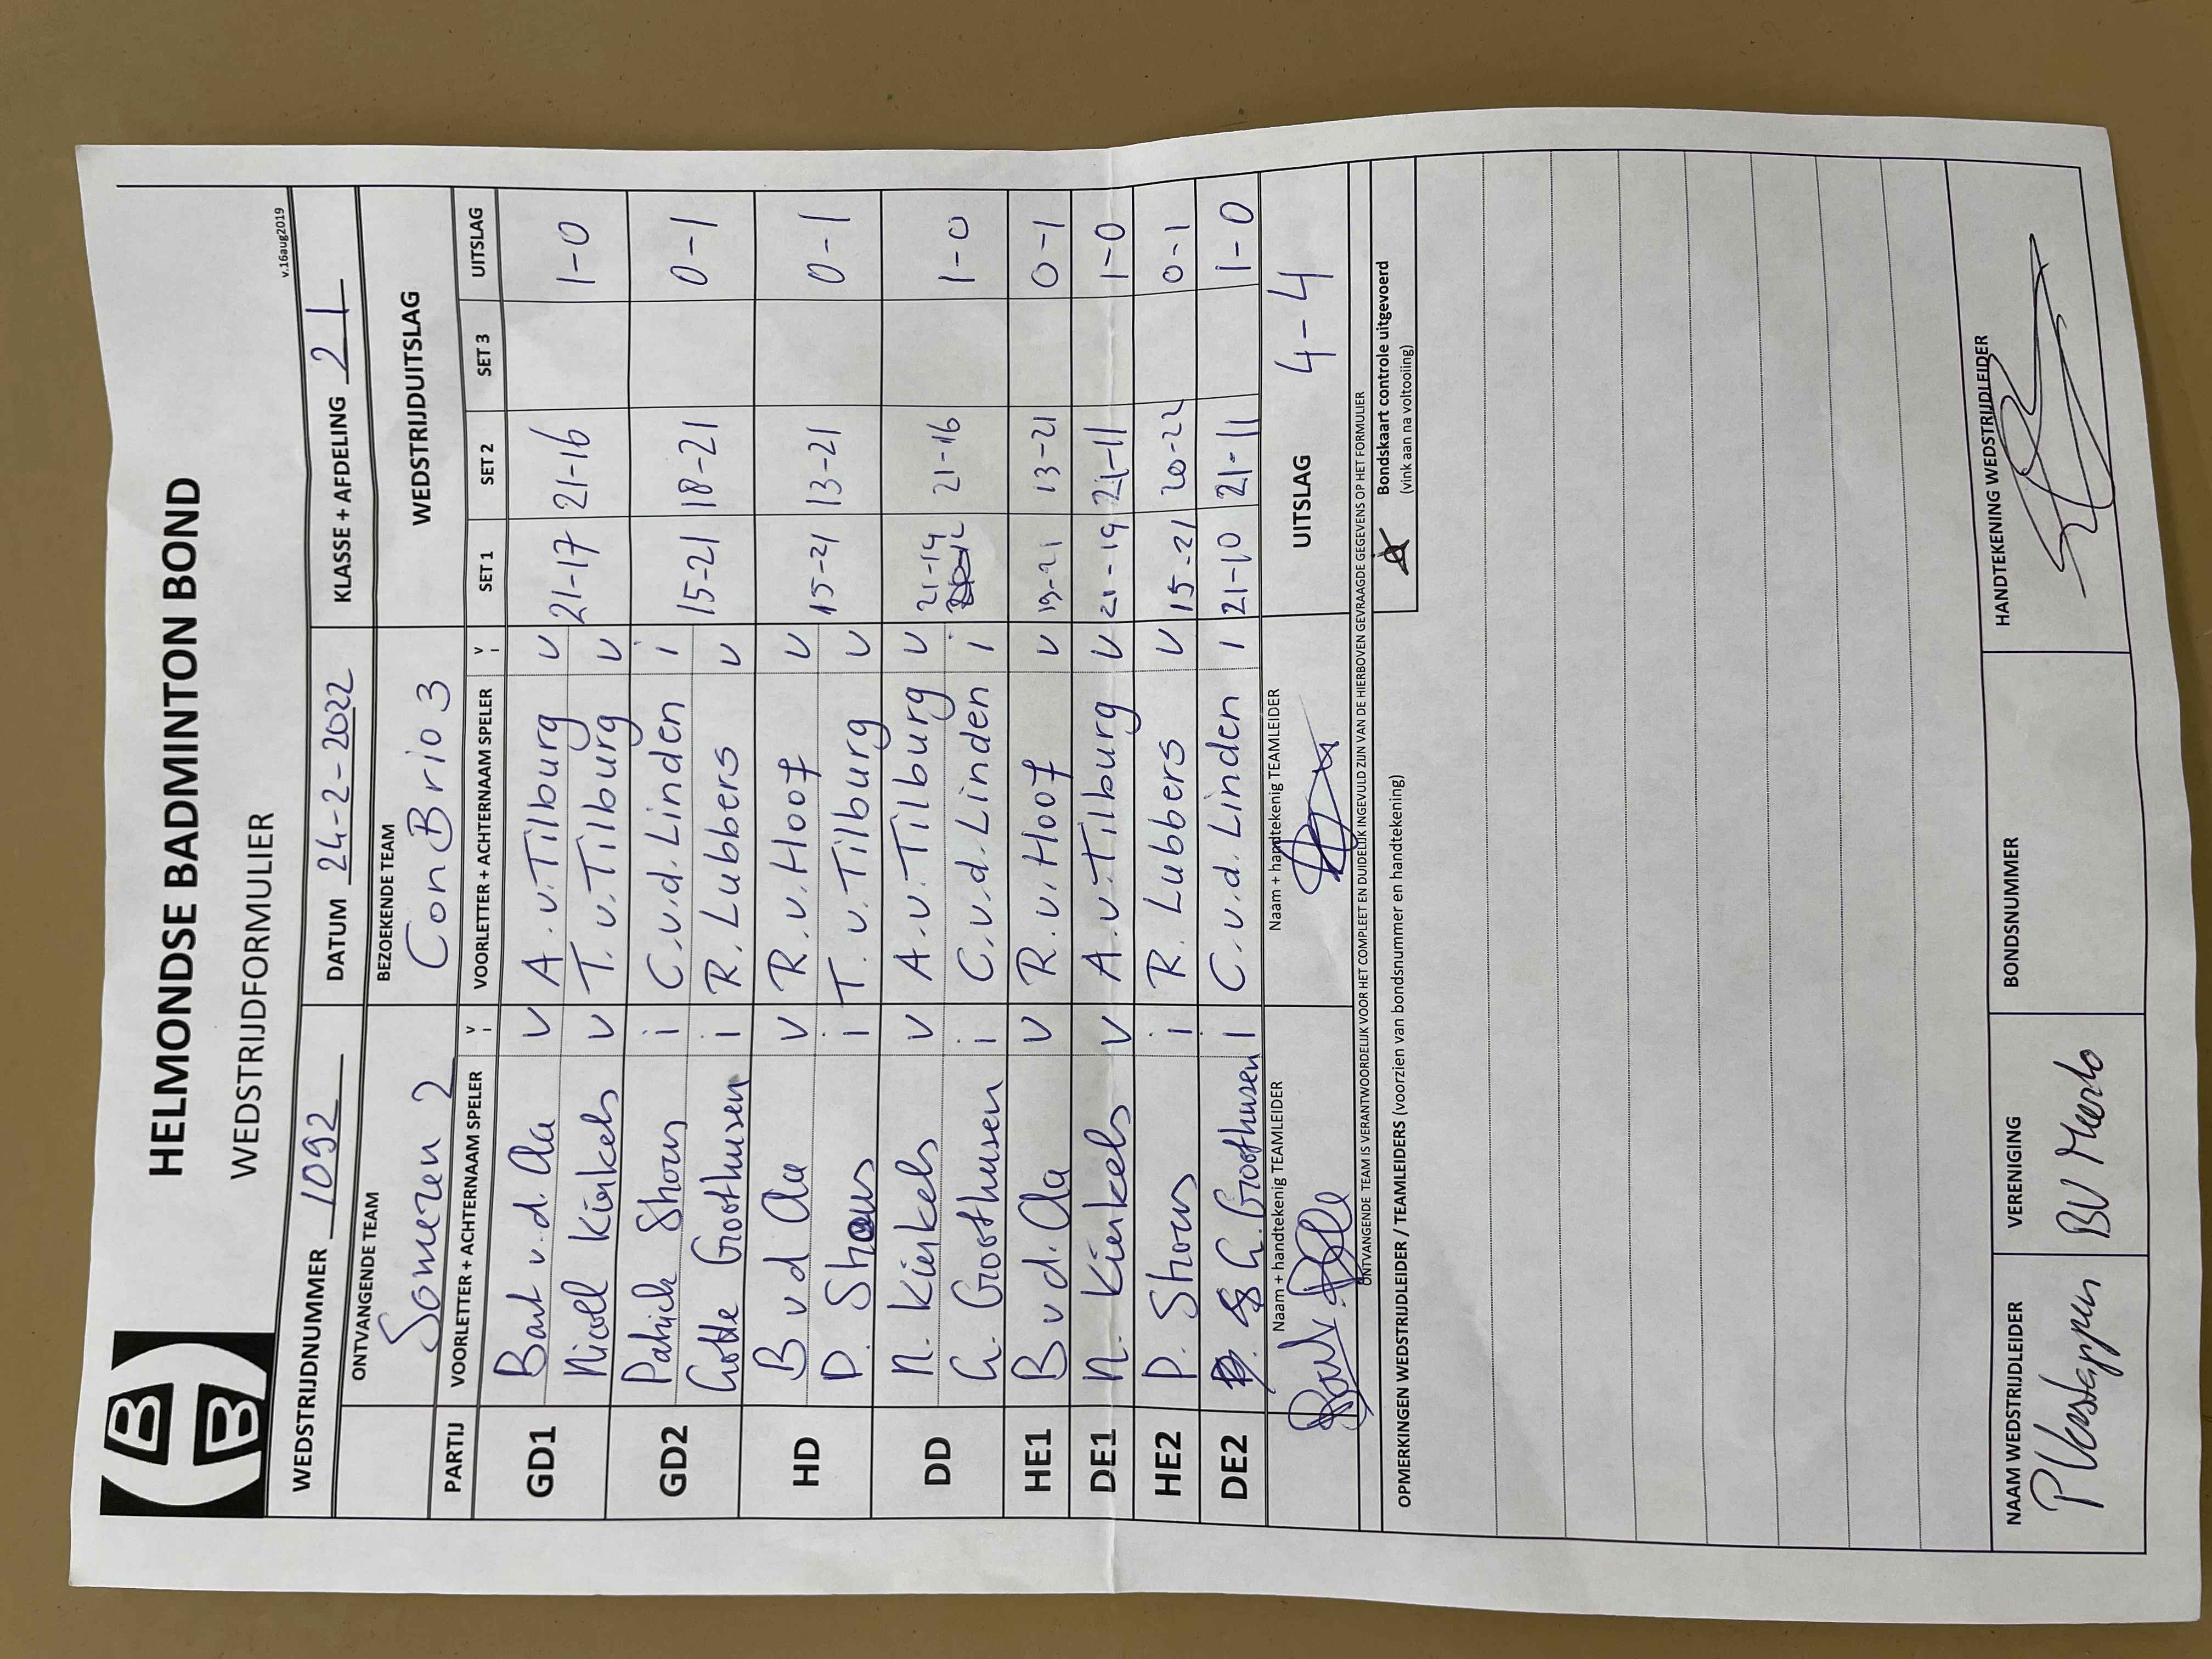 HELMONDSE BADMINTON BOND
WEDSTRIJDFORMULIER
v.16aug2019
WEDSTRIJDNUMMER 1092 DATUM 24-2-2022 KLASSE + AFDELING 21
ONTVANGENDE TEAM BEZOEKENDE TEAM WEDSTRIJDUITSLAG
Someren 2 Con Brio 3
PARTIJ VOORLETTER + ACHTERNAAM SPELER V I VOORLETTER + ACHTERNAAM SPELER V I SET 1 SET 2 SET 3 UITSLAG
GD1 Bart v.d. Aa V A.v.Tilburg V 21-17 21-16 1-0
Nicoll Kierkels V T.v.Tilburg V
GD2 Patrick Shours i C.v.d.Linden i 15-21 18-21 0-1
Groothusen i R. Lubbers V
HD B v d Aa V R.v.Hoof V 15-21 13-21 0-1
P. Shours i T.v.Tilburg V
DD N. Kierkels V A.v.Tilburg V 21-19 21-16 1-0
G. Groothusen i C.v.d.Linden i
HE1 B v d. Aa V R.v.Hoof V 19-21 13-21 0-1
DE1 N. Kierkels V A.v.Tilburg V 21-19 21-11 1-0
HE2 P. Shours i R. Lubbers V 15-21 20-22 0-1
DE2 G. Groothusen i C.v.d.Linden i 21-10 21-11 1-0
Naam + handtekenig TEAMLEIDER Naam + handtekenig TEAMLEIDER UITSLAG 4-4
ONTVANGENDE TEAM IS VERANTWOORDELIJK VOOR HET COMPLEET EN DUIDELIJK INGEVULD ZIJN VAN DE HIERBOVEN GEVRAAGDE GEGEVENS OP HET FORMULIER
OPMERKINGEN WEDSTRIJDLEIDER / TEAMLEIDERS (voorzien van bondsnummer en handtekening) Bondskaart controle uitgevoerd
(vink aan na voltooiing)
NAAM WEDSTRIJDLEIDER VERENIGING BONDSNUMMER HANDTEKENING WEDSTRIJDLEIDER
P Verstappen BV Mierlo